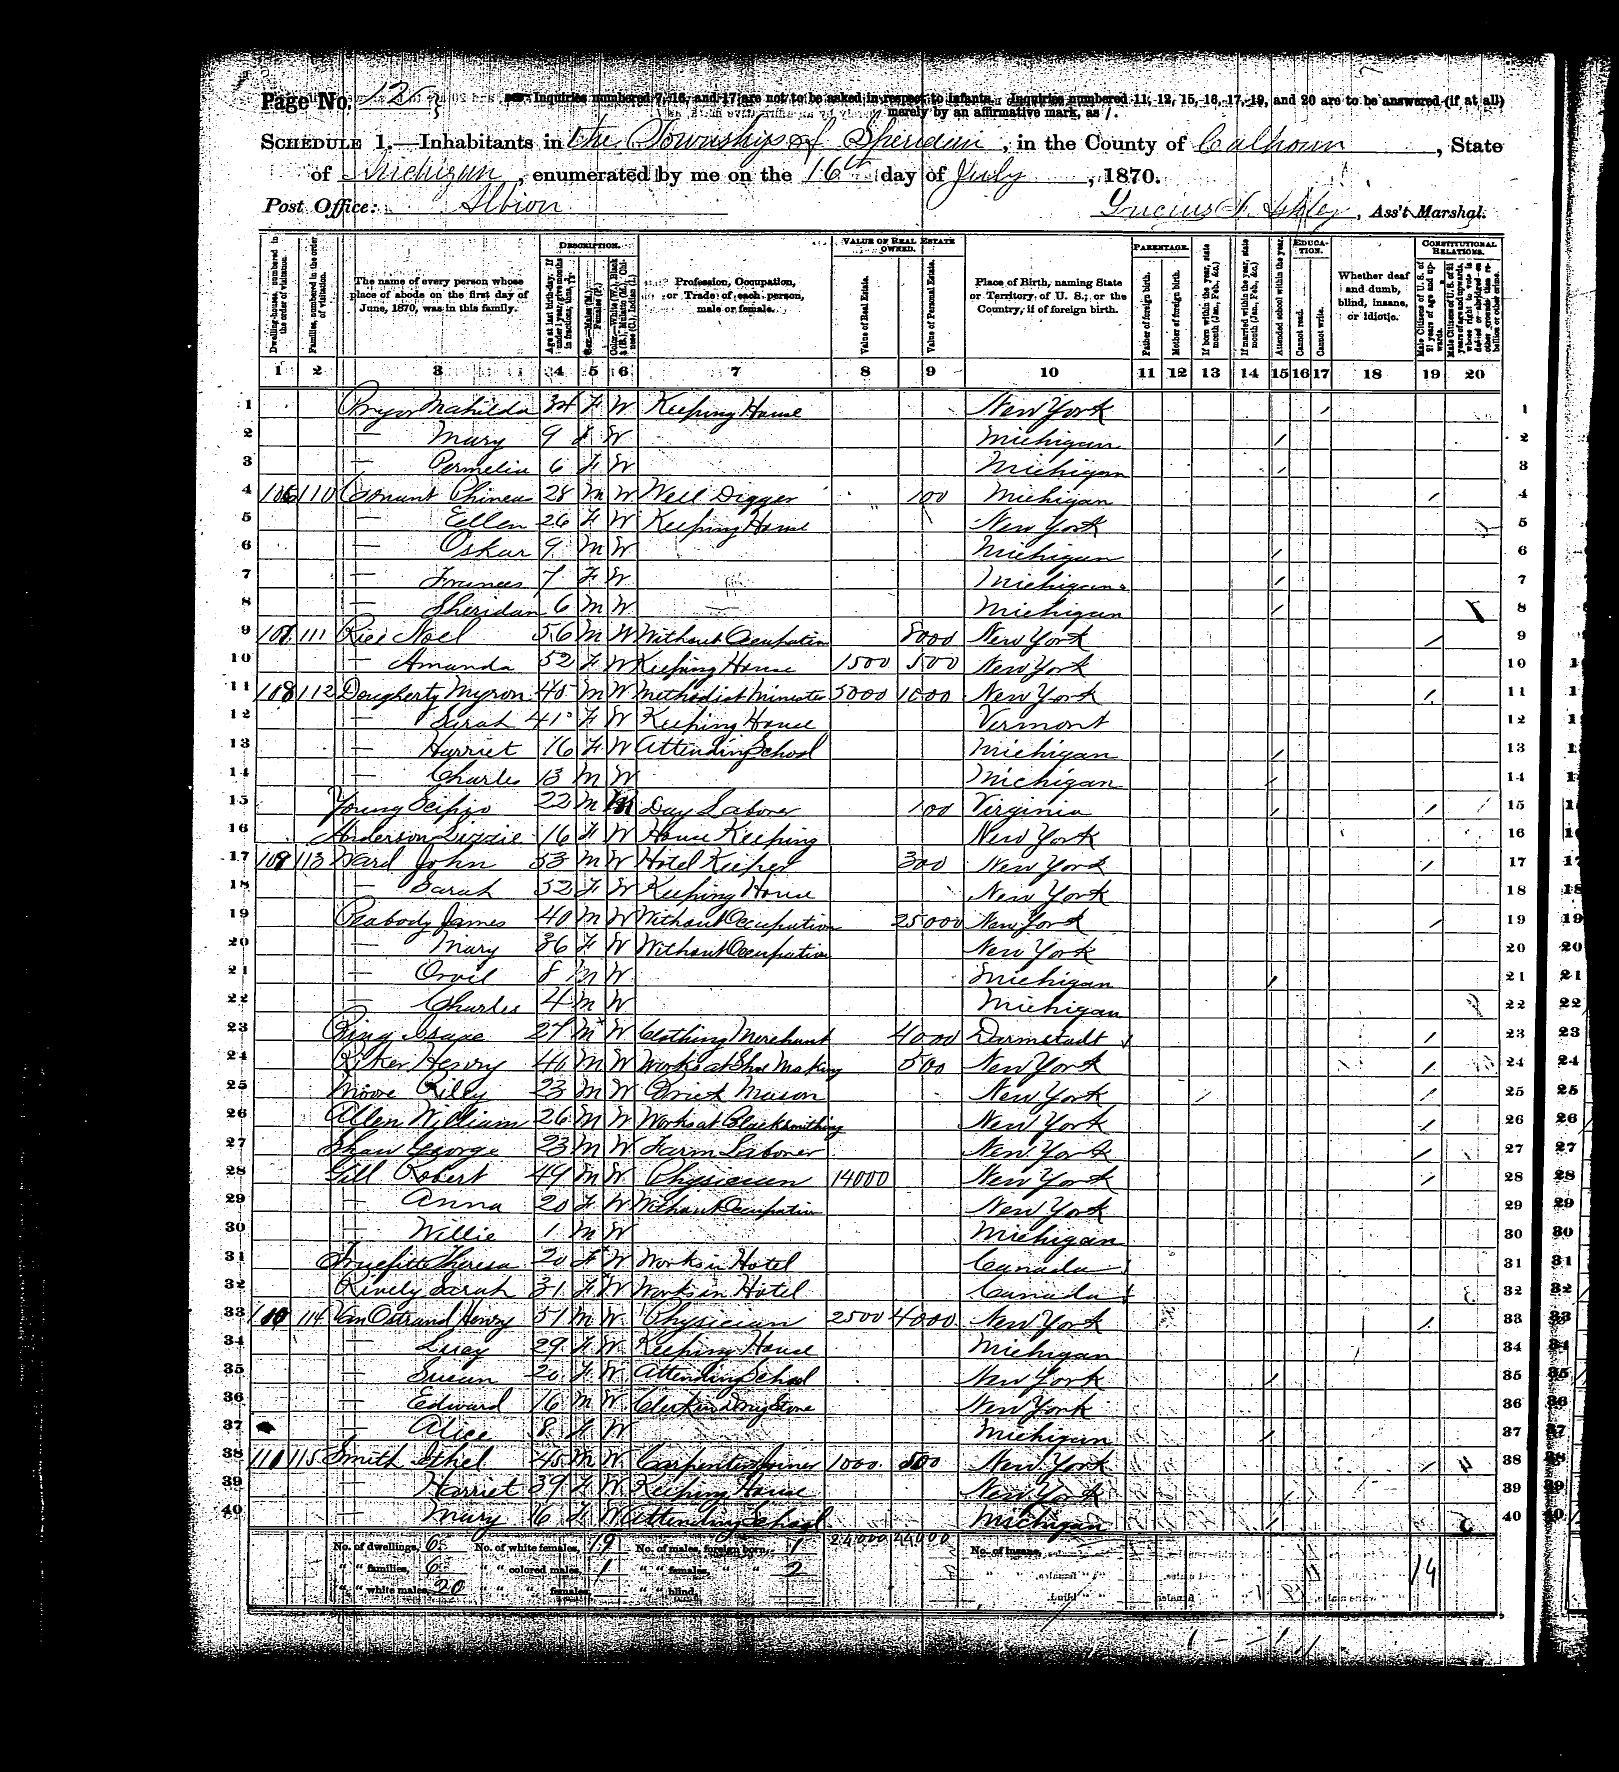 Page No. 12
Inquiries numbered 7, 16, and 17 are not to be asked in respect to infants. Inquiries numbered 11, 12, 15, 16, 17, 19, and 20 are to be answered (if at all)
merely by an affirmative mark, as /.
SCHEDULE 1.—Inhabitants in the Township of Sheridan, in the County of Calhoun, State
of Michigan, enumerated by me on the 16th day of July, 1870.
Post Office: Albion
Ass't Marshal.
DESCRIPTION. VALUE OF REAL ESTATE OWNED. PARENTAGE. EDUCATION. CONSTITUTIONAL RELATIONS.
Dwelling-houses, numbered in the order of visitation. Families, numbered in the order of visitation. The name of every person whose place of abode on the first day of June, 1870, was in this family. Profession, Occupation, or Trade of each person, male or female. Value of Real Estate. Value of Personal Estate. Place of Birth, naming State or Territory of U. S.; or the Country, if of foreign birth. Father of foreign birth. Mother of foreign birth. If born within the year, state month (Jan., Feb., &c.) If married within the year, state month (Jan., Feb., &c.) Attended school within the year. Cannot read. Cannot write. Whether deaf and dumb, blind, insane, or idiotic.
1 2 3 4 5 6 7 8 9 10 11 12 13 14 15 16 17 18 19 20
1 Pryor Mahilda 34 F W Keeping House New York / / 1
2 — Mary 9 F W Michigan / 2
3 — Permelia 6 F W Michigan / 3
4 106 110 Conant Phineas 28 M W Well Digger 100 Michigan / 4
5 — Ellen 26 F W Keeping House New York 5
6 — Oskar 9 M W Michigan / 6
7 — Frances 7 F W Michigan / 7
8 — Sheridan 6 M W Michigan / 8
9 107 111 Rice Noel 56 M W Without Occupation 8000 New York / 9
10 — Amanda 52 F W Keeping House 1500 500 New York 10
11 108 112 Dougherty Myron 40 M W Methodist Minister 5000 1000 New York / 11
12 — Sarah 41 F W Keeping House Vermont 12
13 — Harriet 16 F W Attending School Michigan / 13
14 — Charles 13 M W Michigan / 14
15 Young Scipio 22 M Day Laborer 100 Virginia / / 15
16 Anderson Lizzie 16 F W House Keeping New York 16
17 109 113 Ward John 53 M W Hotel Keeper 300 New York / 17
18 — Sarah 52 F W Keeping House New York 18
19 Peabody James 40 M W Without Occupation 25000 New York / 19
20 — Mary 36 F W Without Occupation New York 20
21 — Orvil 8 M W Michigan / 21
22 — Charles 4 M W Michigan 22
23 Isaac 27 M W Clothing Merchant 4000 Darmstadt / 23
24 Riker Henry 40 M W Works at Shoe Making 500 New York / 24
25 Moore Riley 23 M W Brick Mason New York / 25
26 Allen William 26 M W Works at Blacksmithing New York / 26
27 Shaw George 23 M W Farm Laborer New York / 27
28 Gill Robert 49 M W Physician 14000 New York / 28
29 — Anna 20 F W Without Occupation New York 29
30 — Willie 1 M W Michigan 30
31 Theresa 20 F W Works in Hotel Canada 31
32 Rively Sarah 31 F W Works in Hotel Canada 32
33 110 114 Van Ostrand Henry 51 M W Physician 2500 4000 New York / 33
34 — 29 F W Keeping House Michigan 34
35 — Susan 20 F W Attending School New York / 35
36 — Edward 16 M W Clerk in Drug Store New York 36
37 — Alice 8 F W Michigan / 37
38 111 115 Smith Ethel 45 M W Carpenter & Joiner 1000 500 New York / 38
39 — Harriet 39 F W Keeping House New York 39
40 — Mary 16 F W Attending School Michigan / 40
No. of dwellings, 6 No. of white females, 19 No. of males, foreign born, 1 24000 44000 No. of insane,
" " families, 6 " " colored males, 1 " " females, " " 2 14
" " white males, 20 " " " females, " " blind,